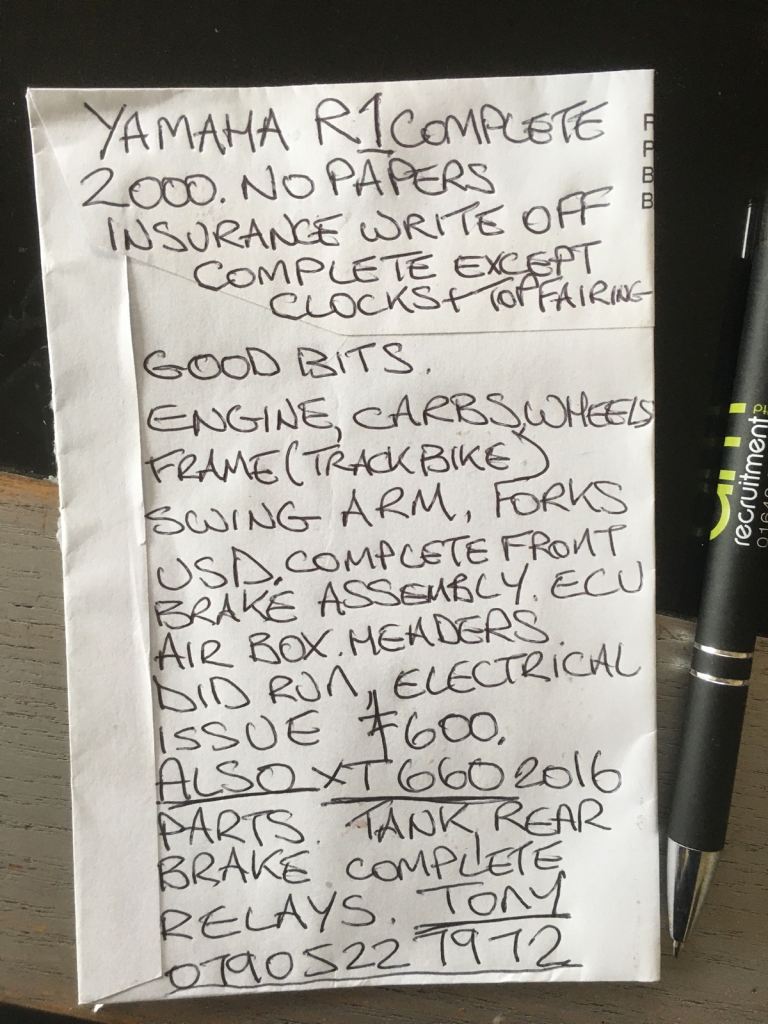 YAMAHA R1 COMPLETE
2000. NO PAPERS
INSURANCE WRITE OFF
COMPLETE EXCEPT
CLOCKS + TOP FAIRING
GOOD BITS.
ENGINE, CARBS, WHEELS
FRAME (TRACK BIKE)
SWING ARM, FORKS
USD. COMPLETE FRONT
BRAKE ASSEMBLY. ECU
AIR BOX. HEADERS.
DID RUN, ELECTRICAL
ISSUE £600.
ALSO XT 660 2016
PARTS. TANK, REAR
BRAKE COMPLETE
RELAYS. TONY
07905227972
P
P
B
B
recruitment